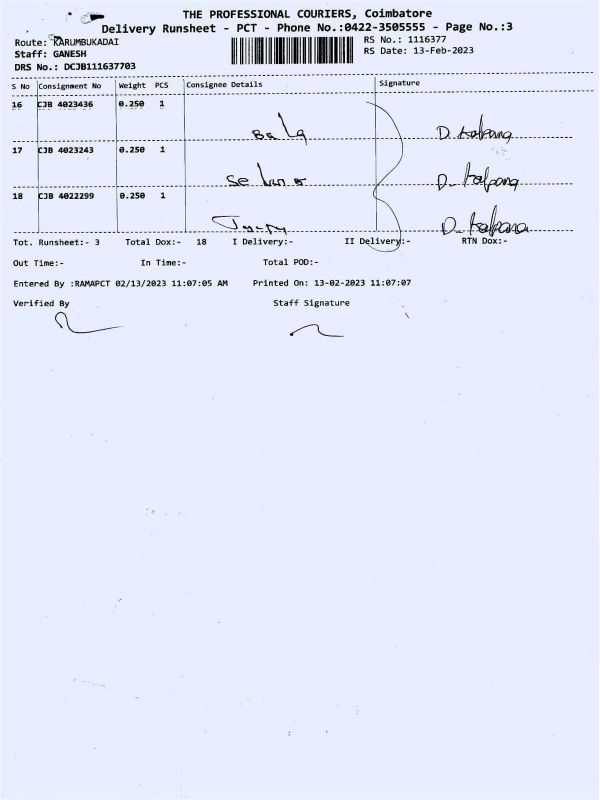 THE PROFESSIONAL COURIERS, Coimbatore
Delivery Runsheet - PCT - Phone No.:0422-3505555 - Page No.:3
Route: KARUMBUKADAI
RS No.: 1116377
Staff: GANESH
RS Date: 13-Feb-2023
DRS No.: DCJB111637703
S No Consignment No Weight PCS Consignee Details Signature
16 CJB 4023436 0.250 1
Bala D. Kalpana
17 CJB 4023243 0.250 1
D. Kalpana
18 CJB 4022299 0.250 1
D. Kalpana
Tot. Runsheet:- 3 Total Dox:- 18 I Delivery:- II Delivery:- RTN Dox:-
Out Time:- In Time:- Total POD:-
Entered By :RAMAPCT 02/13/2023 11:07:05 AM Printed On: 13-02-2023 11:07:07
Verified By Staff Signature